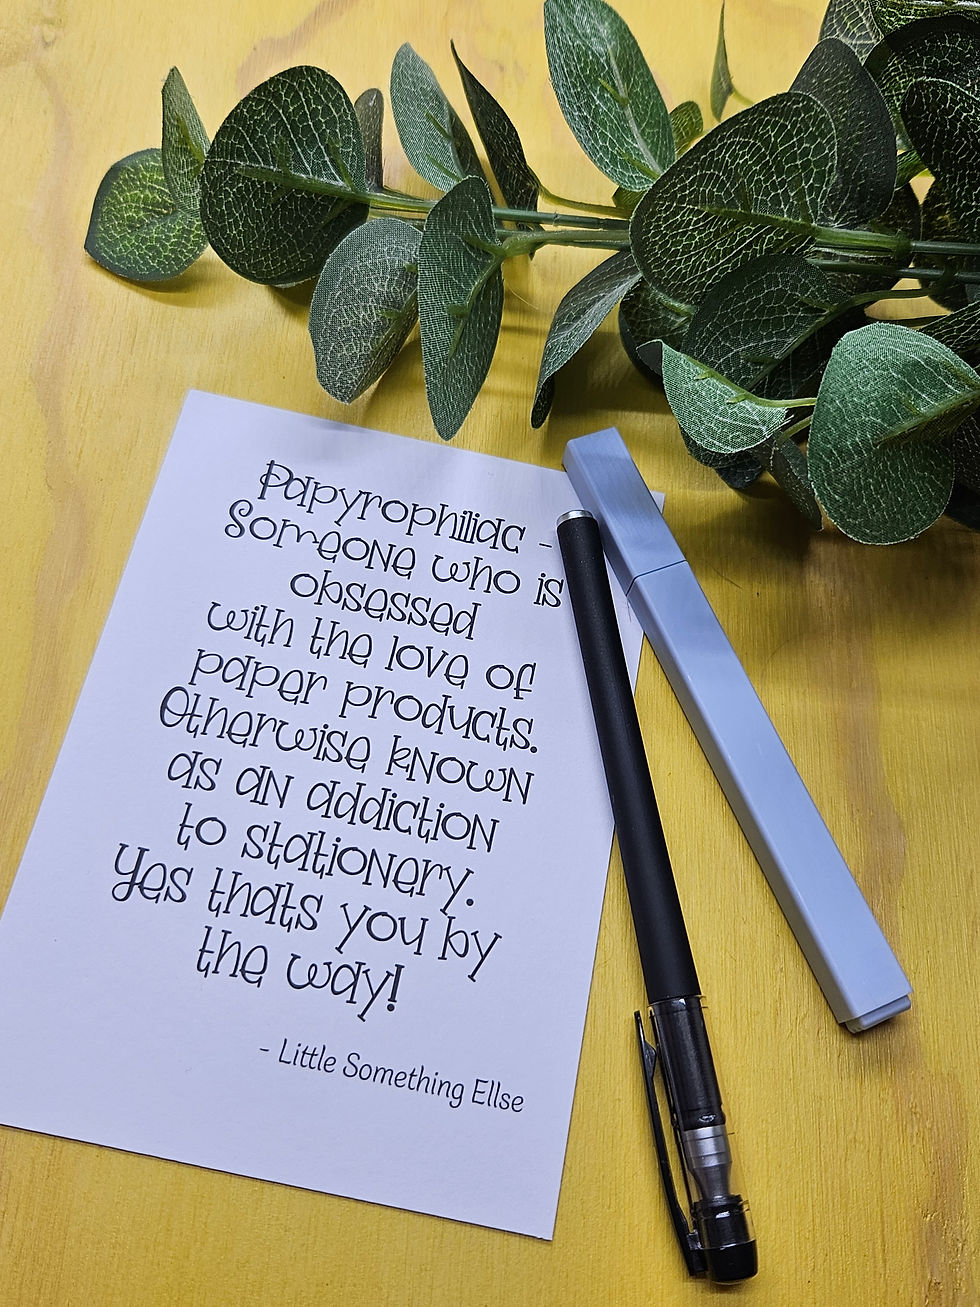 Papyrophiliac -
Someone who is
obsessed
with the love of
paper products.
Otherwise known
as an addiction
to stationery.
Yes thats you by
the way!
- Little Something Ellse